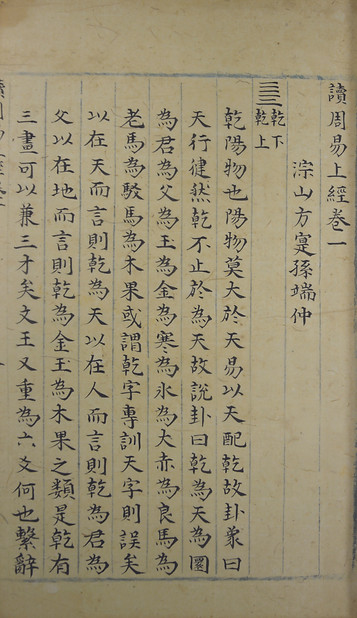 讀周易上經卷一
淙山方寔孫端仲
☰☰乾下乾上
乾陽物也陽物莫大於天易以天配乾故卦彖曰
天行健然乾不止於為天故說卦曰乾為天為圜
為君為父為玉為金為寒為氷為大赤為良馬為
老馬為駁馬為木果或謂乾字專訓天字則誤矣
以在天而言則乾為天以在人而言則乾為君為
父以在地而言則乾為金玉為木果之類是乾有
三畫可以兼三才矣文王又重為六爻何也繫辭